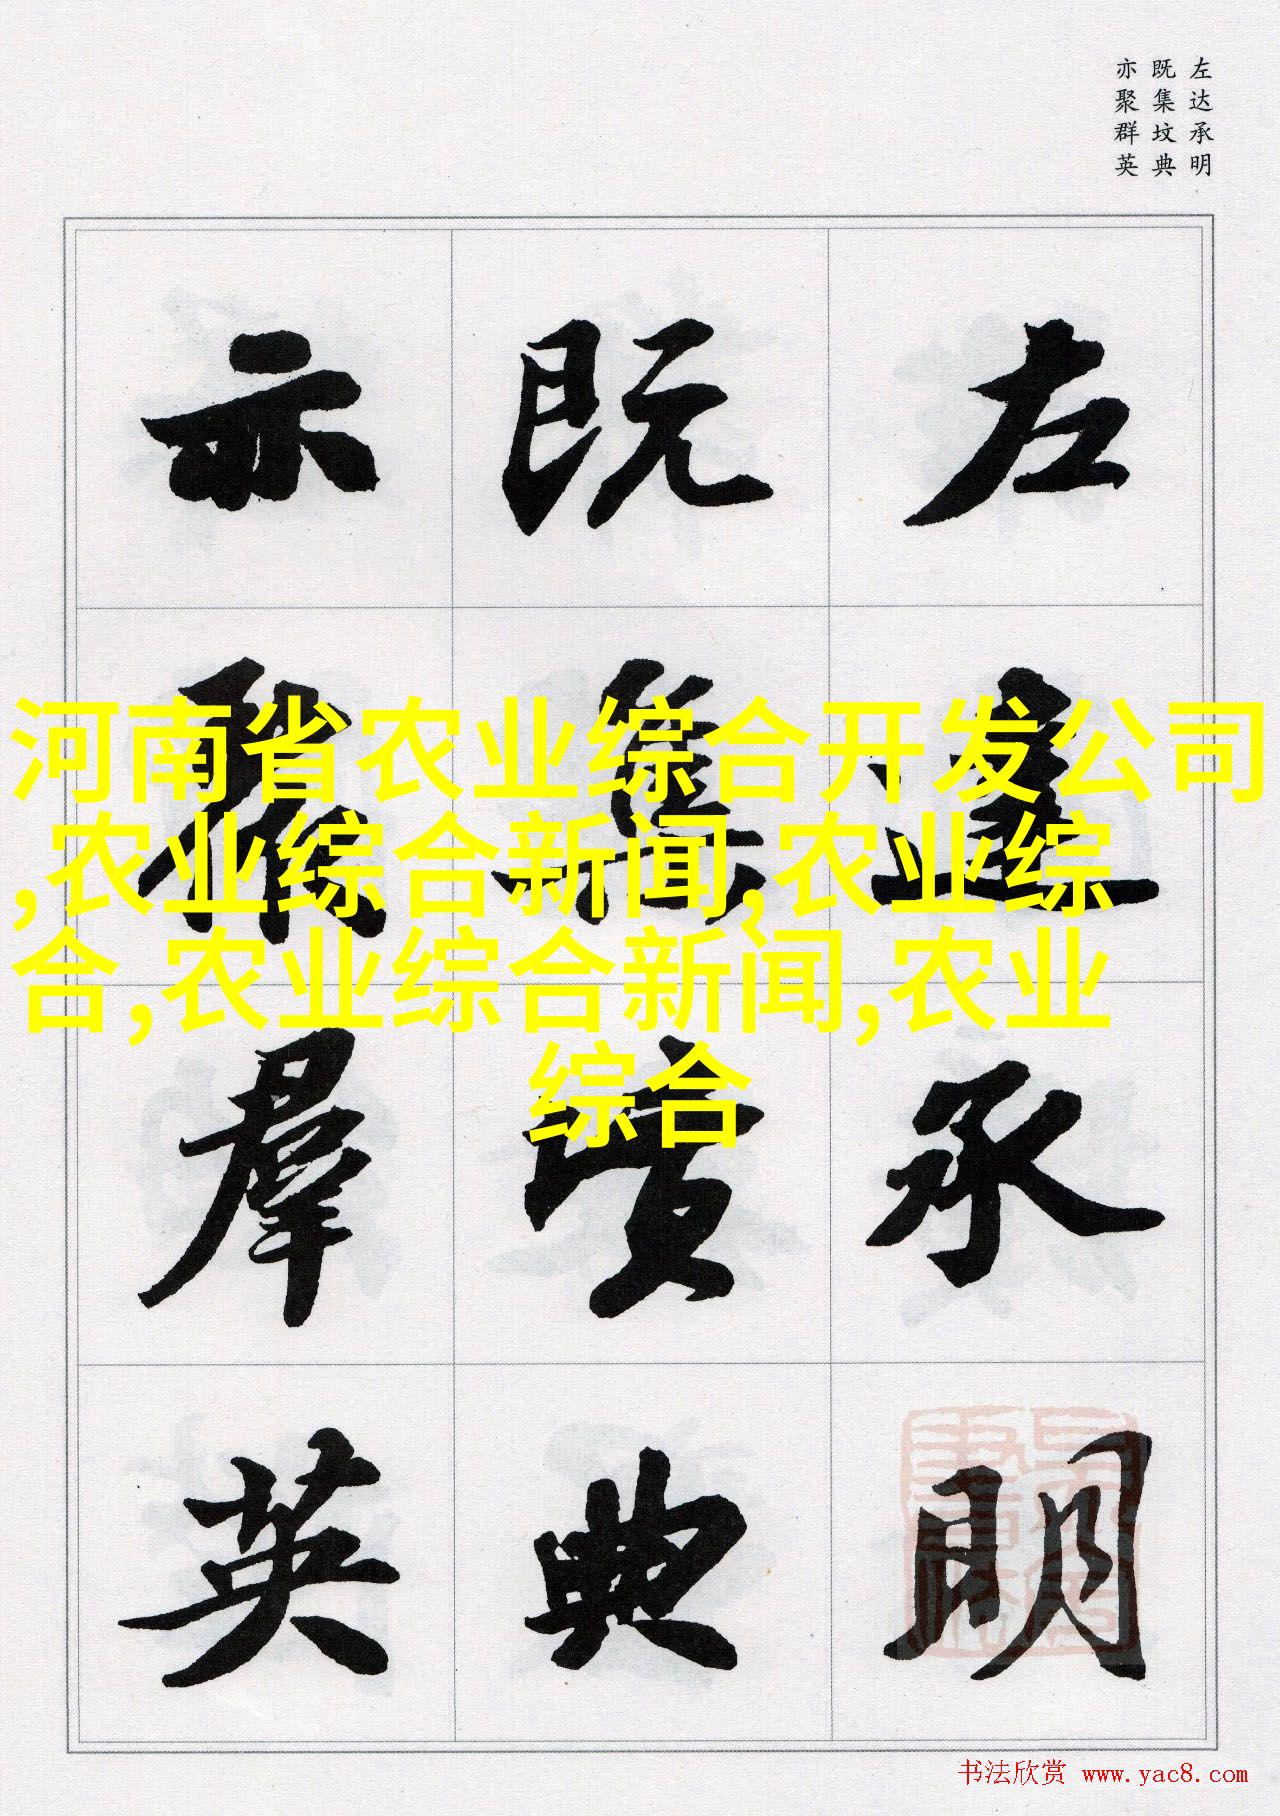 左达承明
既集坟典
亦聚群英
河南省农业综合开发公司
,农业综合新闻,农业综
合,农业综合新闻,农业
综合
左达承明
既集坟典
亦聚群英
书法欣赏 www.yac8.com